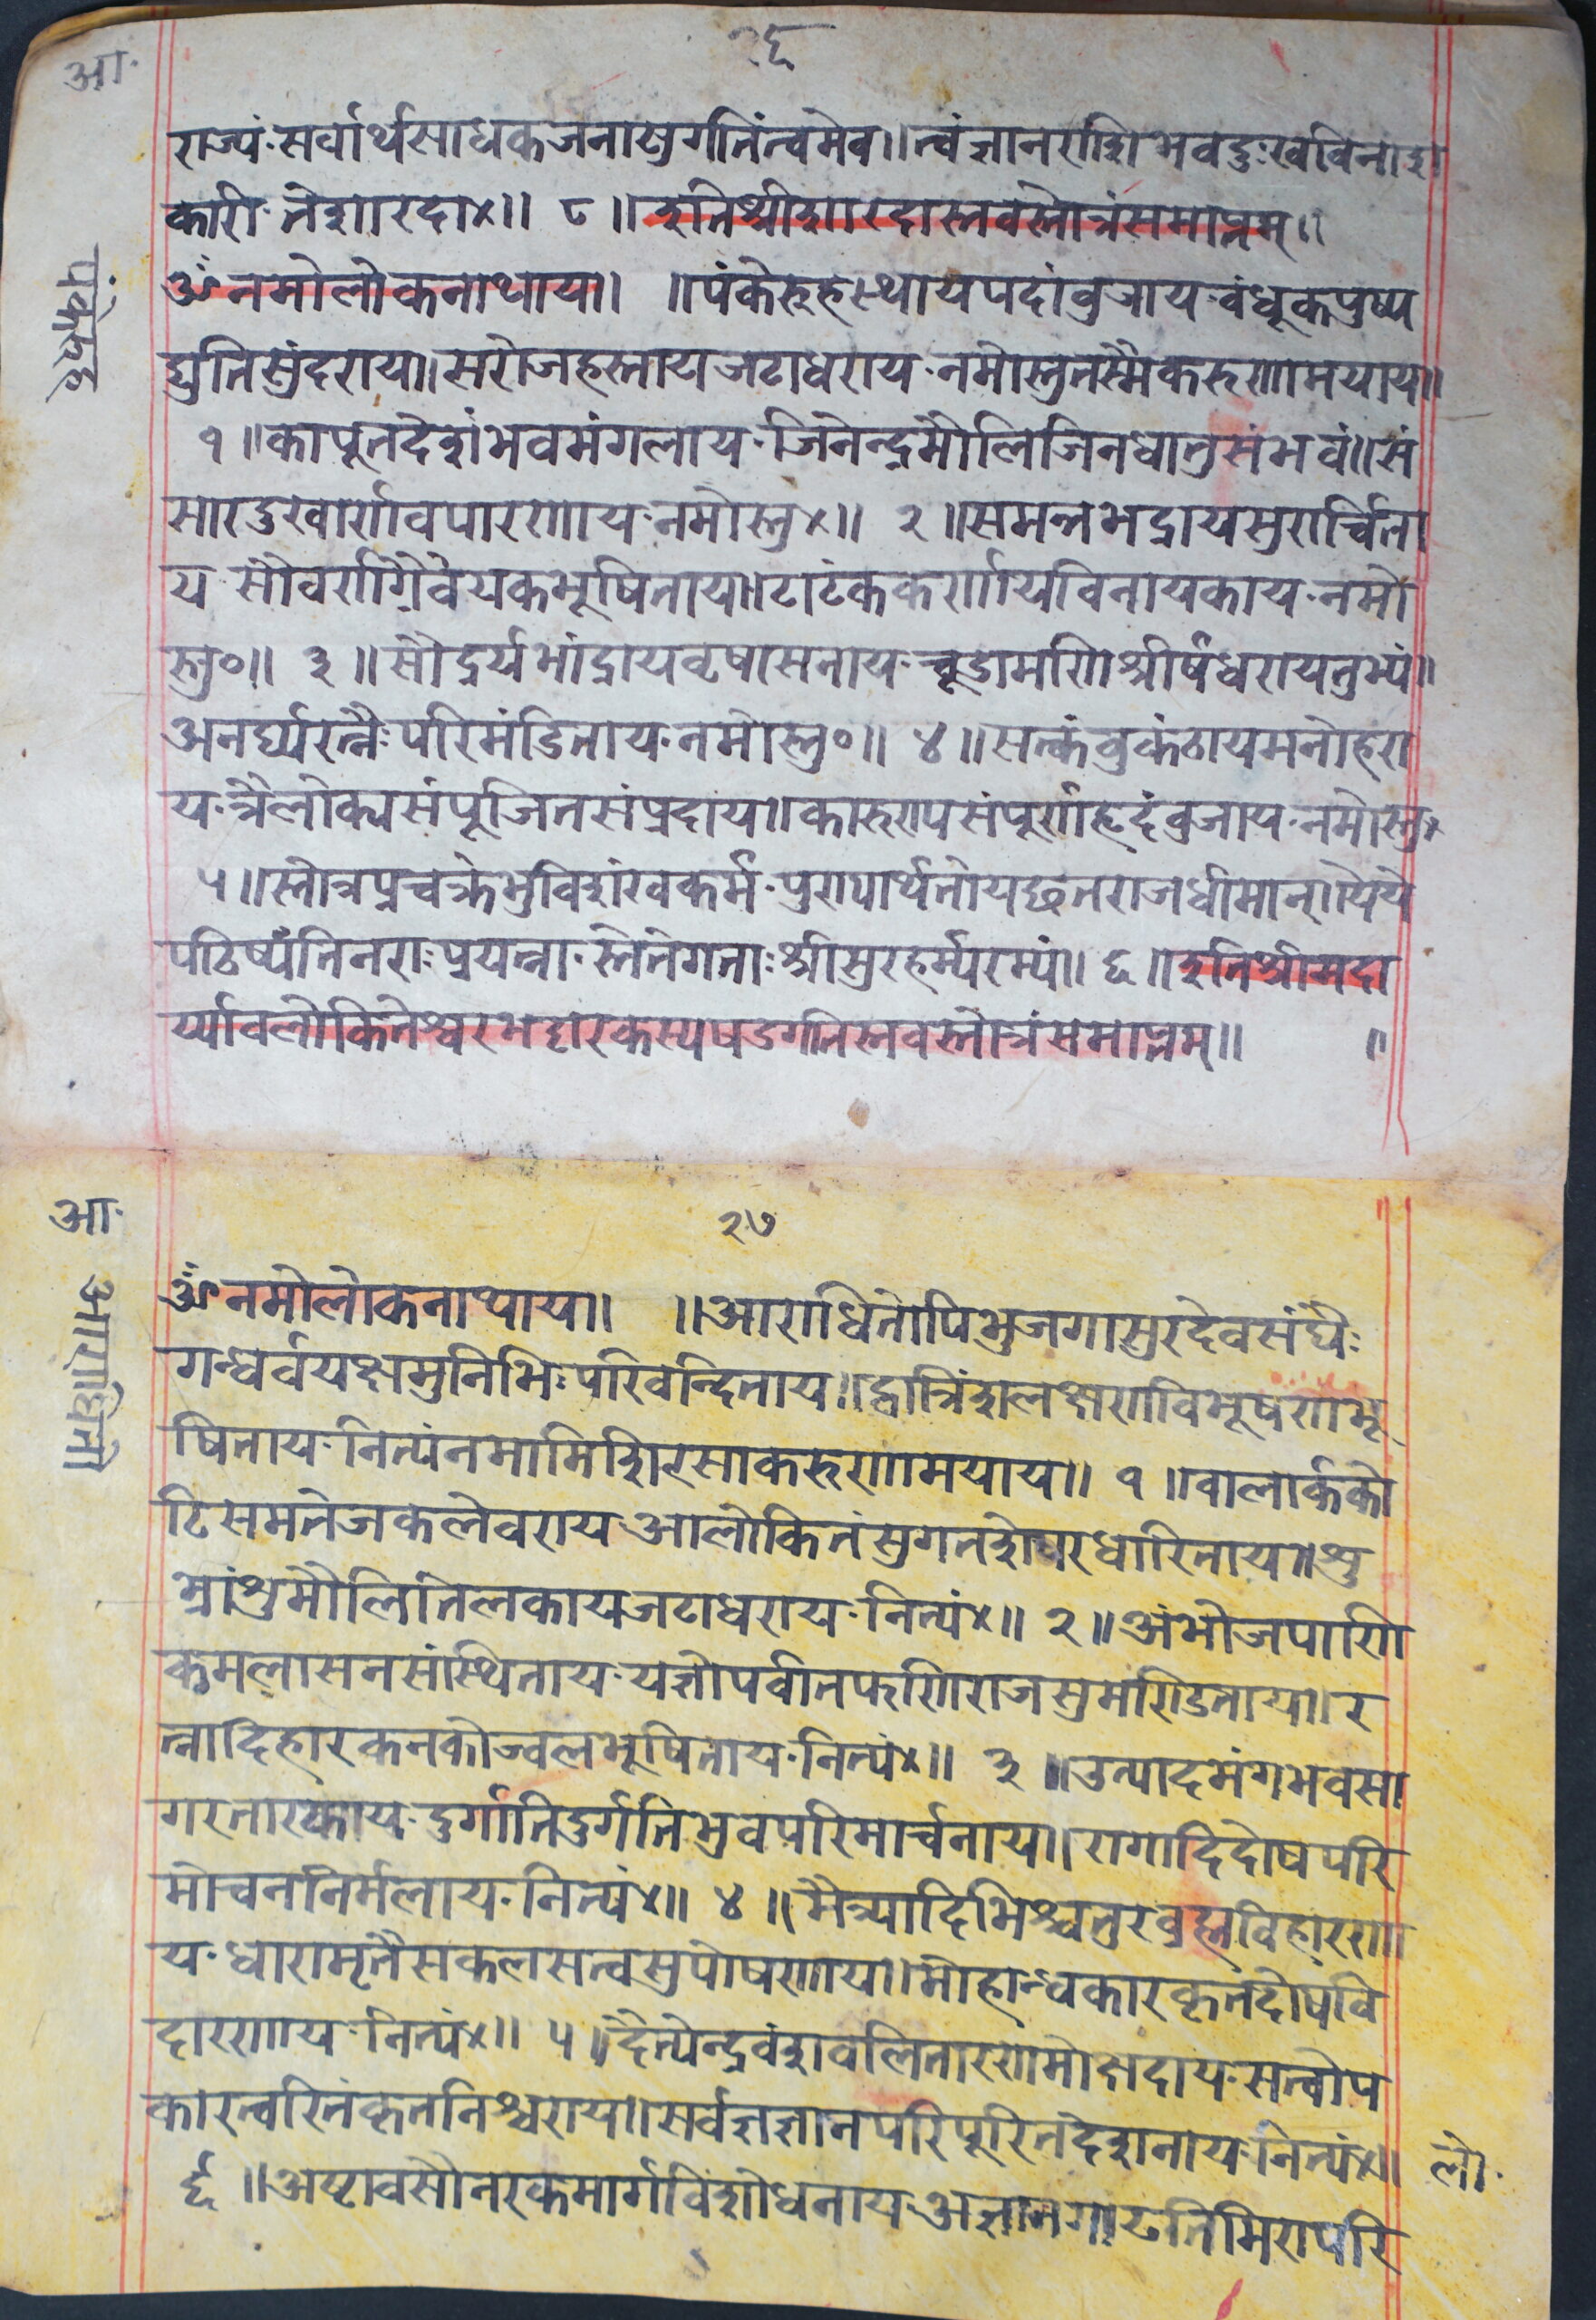 २६
आ·
राज्यं·सर्वार्थसाधकजनासुगतिंत्वमेव॥त्वंज्ञानराशिभवदुःखविनाश
कारी·तेशारदा×॥ ८ ॥इतिश्रीशारदास्तवस्तोत्रंसमाप्तम्॥
ॐनमोलोकनाथाय॥ ॥पंकेरुहस्थायपदांवुजाय·वंधूकपुष्प
पंकेरुह
द्युतिसुंदराय॥सरोजहस्तायजटाधराय·नमोस्तुतस्मैकरुणामयाय॥
१ ॥कापूतदेशंभवमंगलाय·जिनेन्द्रमौलिजिनधातुसंभवं॥सं
सारदुखार्णवपारणाय·नमोस्तु×॥ २ ॥समन्तभद्रायसुरार्च्चिता
य·सौवर्णग्रैवेयकभूषिताय॥टाटंककर्णायविनायकाय·नमो
स्तु०॥ ३ ॥सौद्रर्यभांद्रायवृषासनाय·चूडामणिश्रीर्षधरायतुभ्यं॥
अनर्घ्यरत्नैःपरिमंडिताय·नमोस्तु०॥ ४ ॥सत्कंवुकंठायमनोहरा
य·त्रैलोक्यसंपूजितसंप्रदाय॥कारुण्यसंपूर्णहृदंवुजाय·नमोस्तु×
५ ॥स्तोत्रप्रचक्रेभुविशंखकर्म·पुण्यार्थतोयछतराजधीमान्॥येये
पठिष्यंतिनराःप्रयत्ना·स्तेतेगताःश्रीसुरहर्म्यरम्यं॥ ६ ॥इतिश्रीमदा
र्य्यावलोकितेश्वरभट्टारकस्यषडगतिस्तवस्तोत्रंसमाप्तम्॥ ॥
२७
आ·
ॐनमोलोकनाथाय॥ ॥आराधितोपिभुजगासुरदेवसंघैः
आराधितो
गन्धर्वयक्षमुनिभिःपरिवन्दिताय॥द्वात्रिंशलक्षणविभूषणभू
षिताय·नित्यंनमामिशिरसाकरुणामयाय॥ १ ॥वालार्कको
टिसमतेजकलेवराय·आलोकितंसुगतशेषरधारिताय॥शु
भ्रांशुमौलितिलकायजटाधराय·नित्यं×॥ २ ॥अंभोजपाणि
कमलासनसंस्थिताय·यज्ञोपवीतफणिराजसुमण्डिताय॥र
त्नादिहारकनकोज्वलभूषिताय·नित्यं×॥ ३ ॥उत्पादमंगभवसा
गरतारकाय·दुर्गातिदुर्गतिभुवपरिमार्चनाय॥रागादिदोषपरि
मोचननिर्मलाय·नित्यं×॥ ४ ॥मैत्र्यादिभिश्चतुरव्रह्मविहारणा
य·धारामृतैसकलसत्वसुपोषणाय॥मोहान्धकारकृतदोषवि
दारणाय·नित्यं×॥ ५ ॥दैत्येन्द्रवंशवलितारणमोक्षदाय·सत्वोप
कारत्वरितंकृतनिश्चराय॥सर्वज्ञज्ञानपरिपूरितदेशनाय·नित्यं×॥
लो·
६ ॥अष्टावसौनरकमार्गविशोधनाय·अज्ञानगाढतिमिरापरि